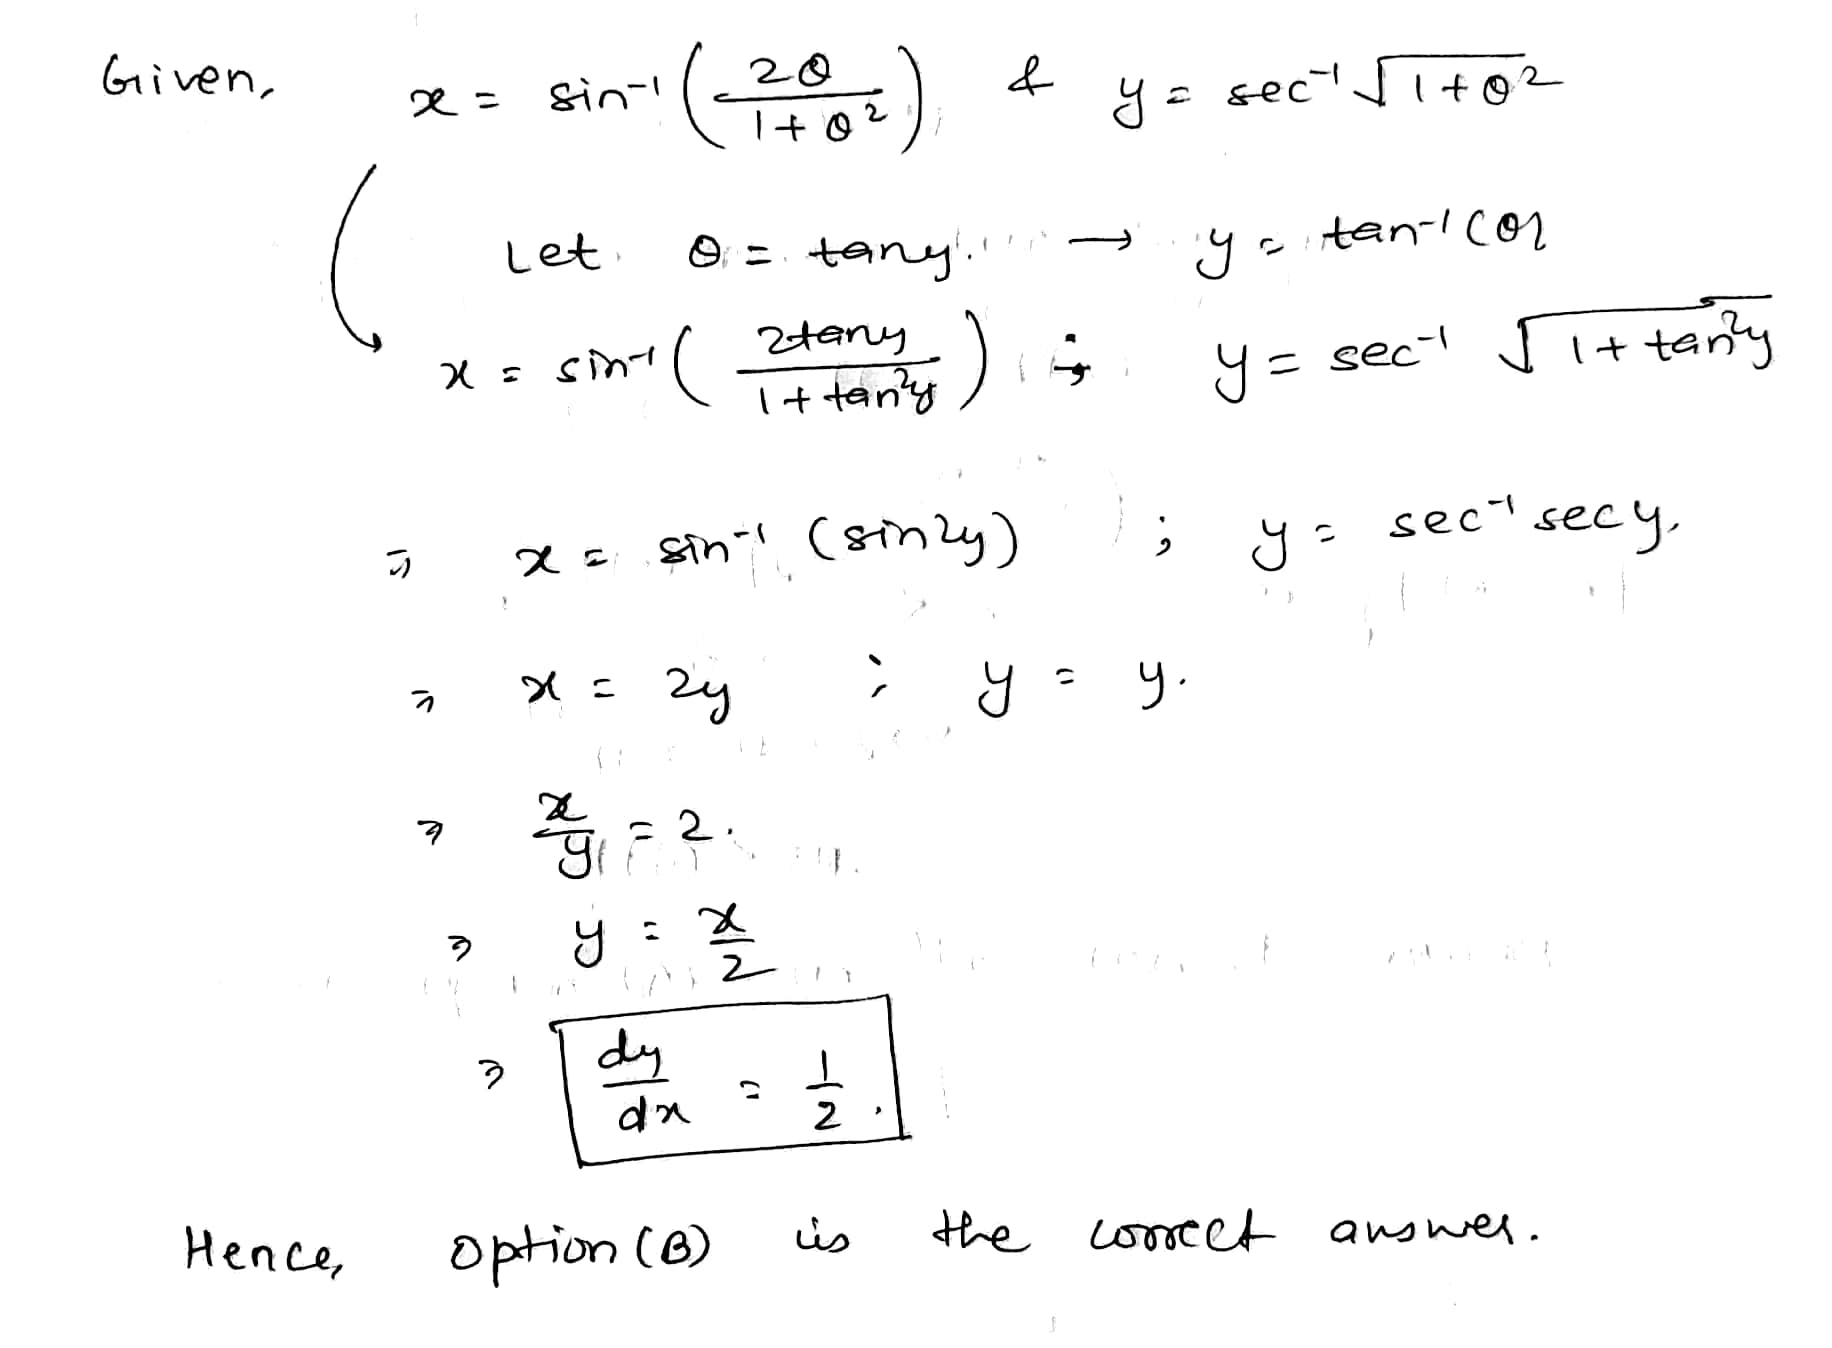 Given, x = sin⁻¹(2θ/(1+θ²)), & y = sec⁻¹√(1+θ²)
Let θ = tany. → y = tan⁻¹(θ)
x = sin⁻¹(2tany/(1+tan²y)) ; y = sec⁻¹ √(1+tan²y)
⇒ x = sin⁻¹(sin2y) ; y = sec⁻¹ secy.
⇒ x = 2y ; y = y.
⇒ x/y = 2.
⇒ y = x/2
⇒ dy/dx = 1/2.
Hence, option (B) is the correct answer.